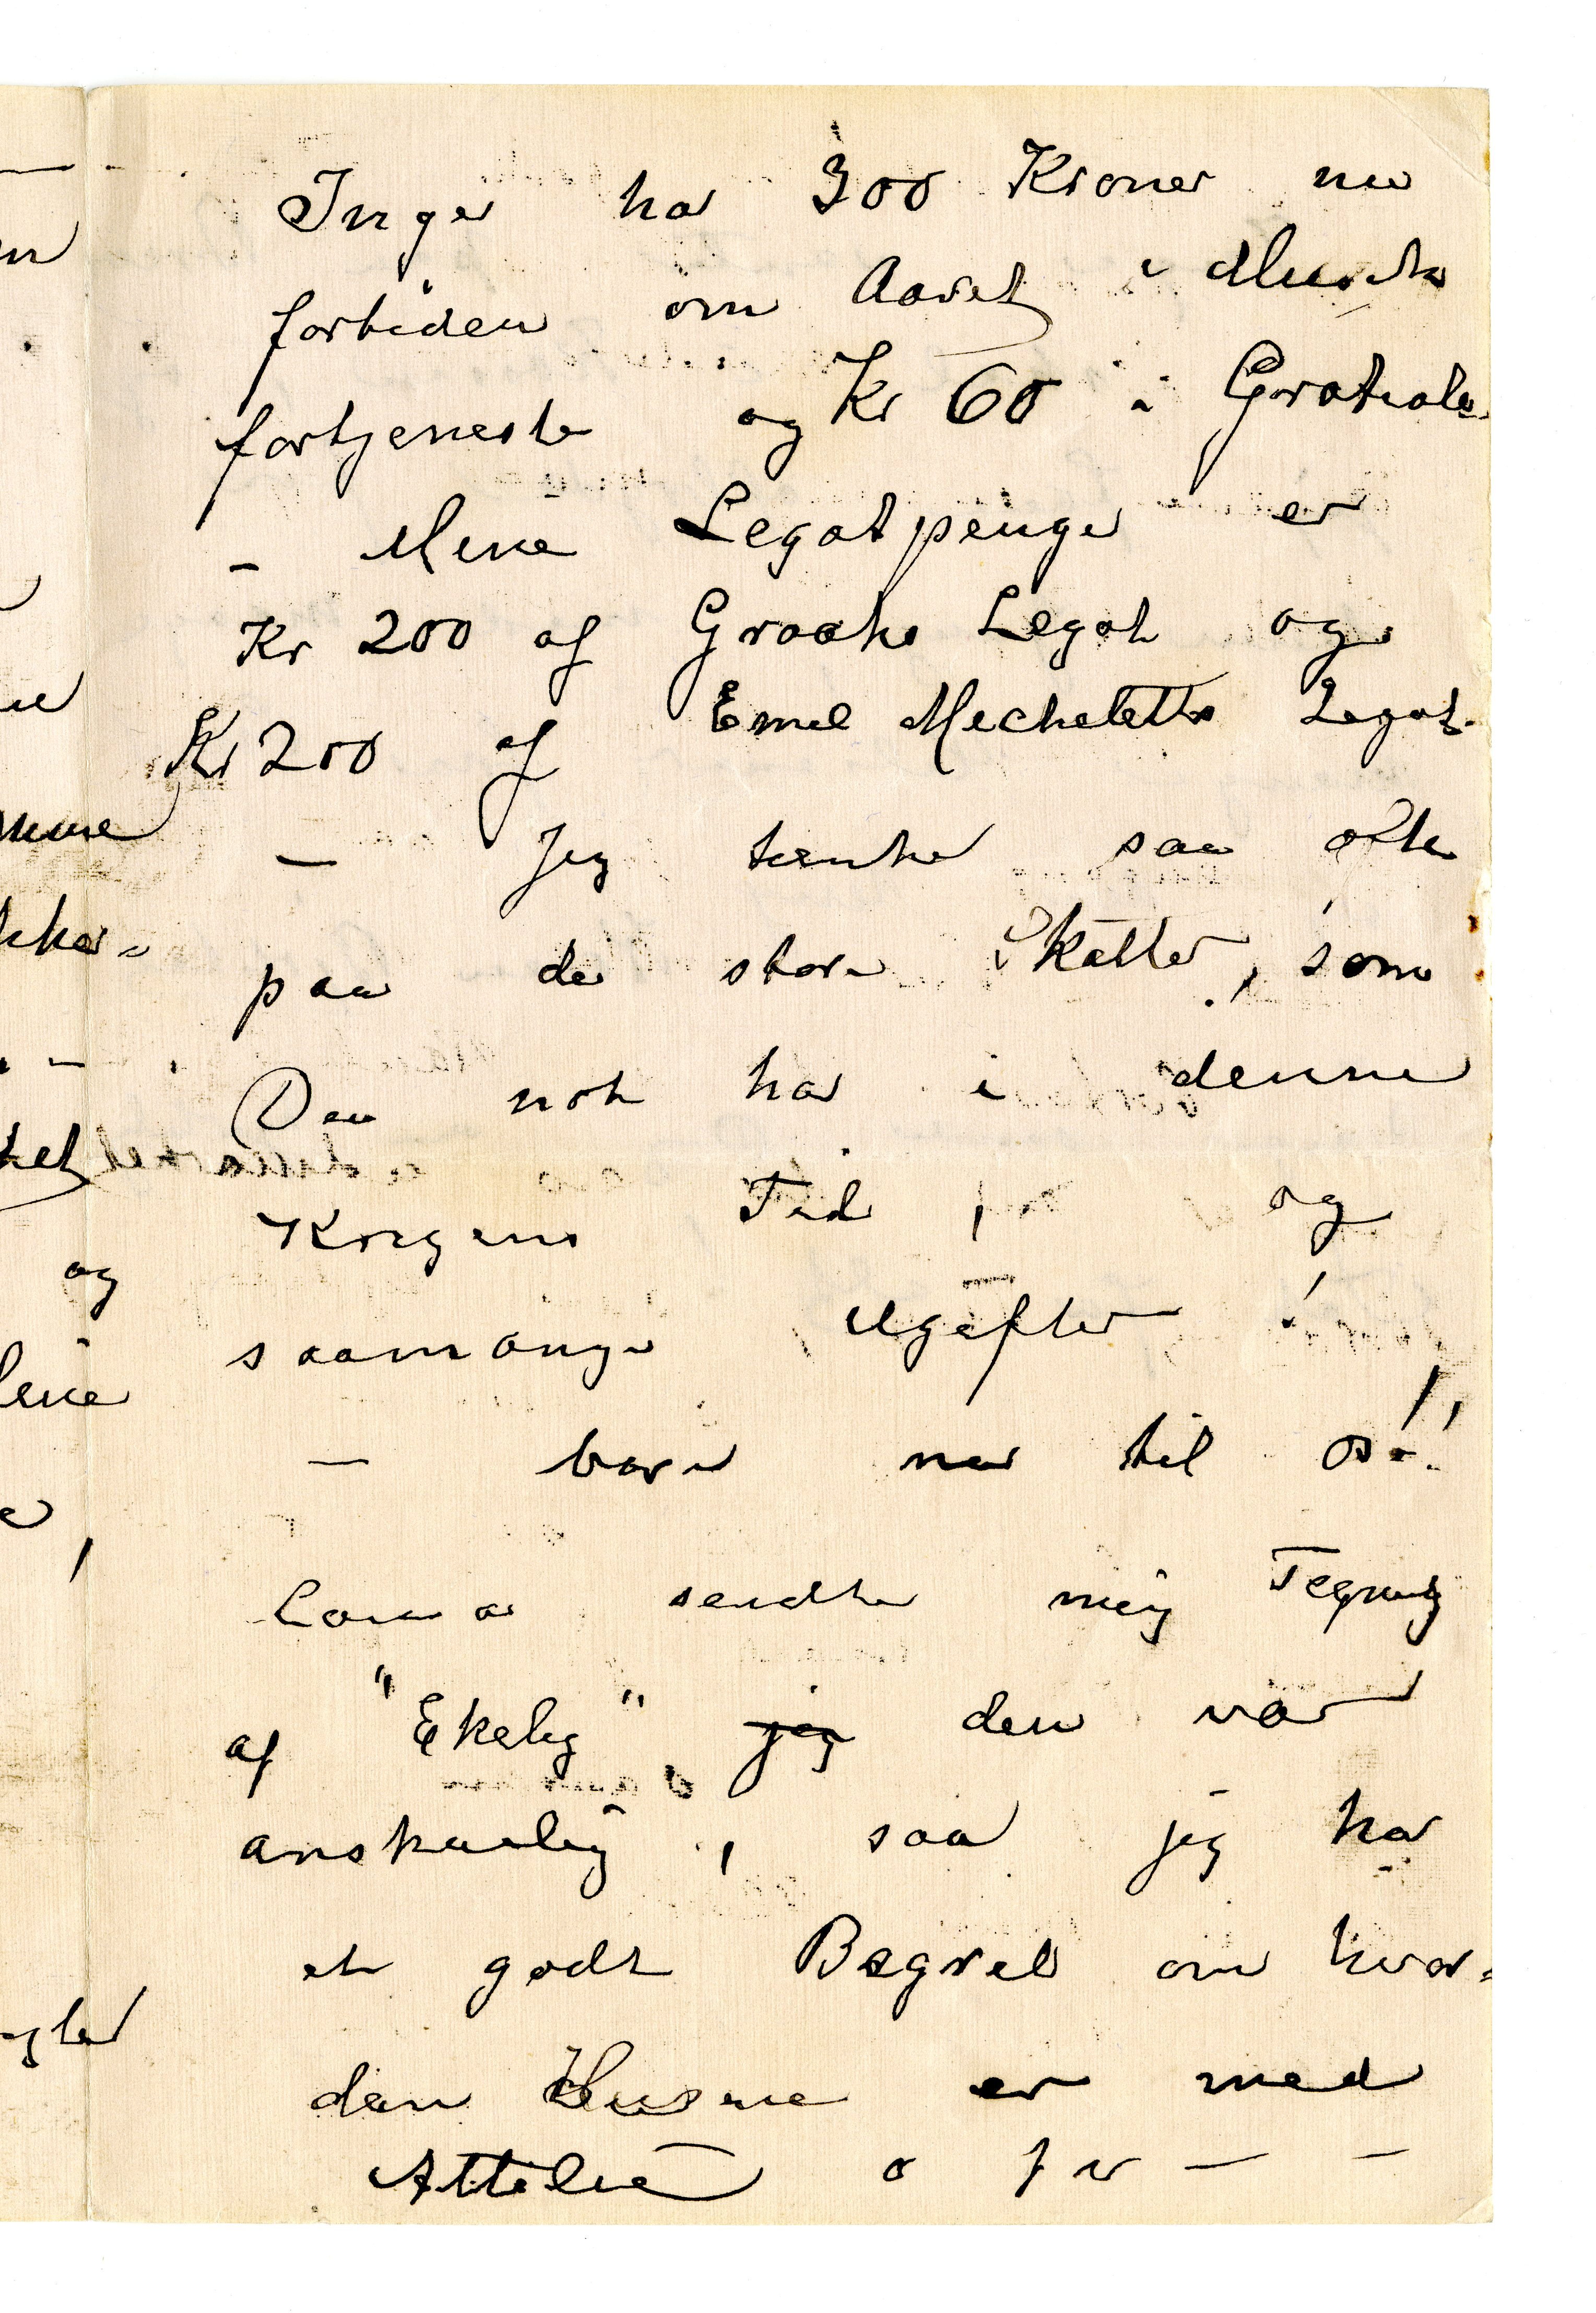 Inger har 300 Kroner nu
fortiden om Aaret i Musik
fortjeneste og Kr 60 i Gratiale.
– Mine Legatpenge er
Kr 200 af Graahs Legat og
Kr 200 af Emil Mecheletts Legat.
– Jeg tænker saa ofte
paa de store Skatter, som
Du nok har i denne
Krigens Tid, og
saamange Udgifter!
– bare nu til os!!
Laura sendte mig Tegning
af "Ekely" jeg den var
anskuelig, saa jeg har
et godt Begreb om hvor-
dan Husene er med
Attelie o f v – –
og